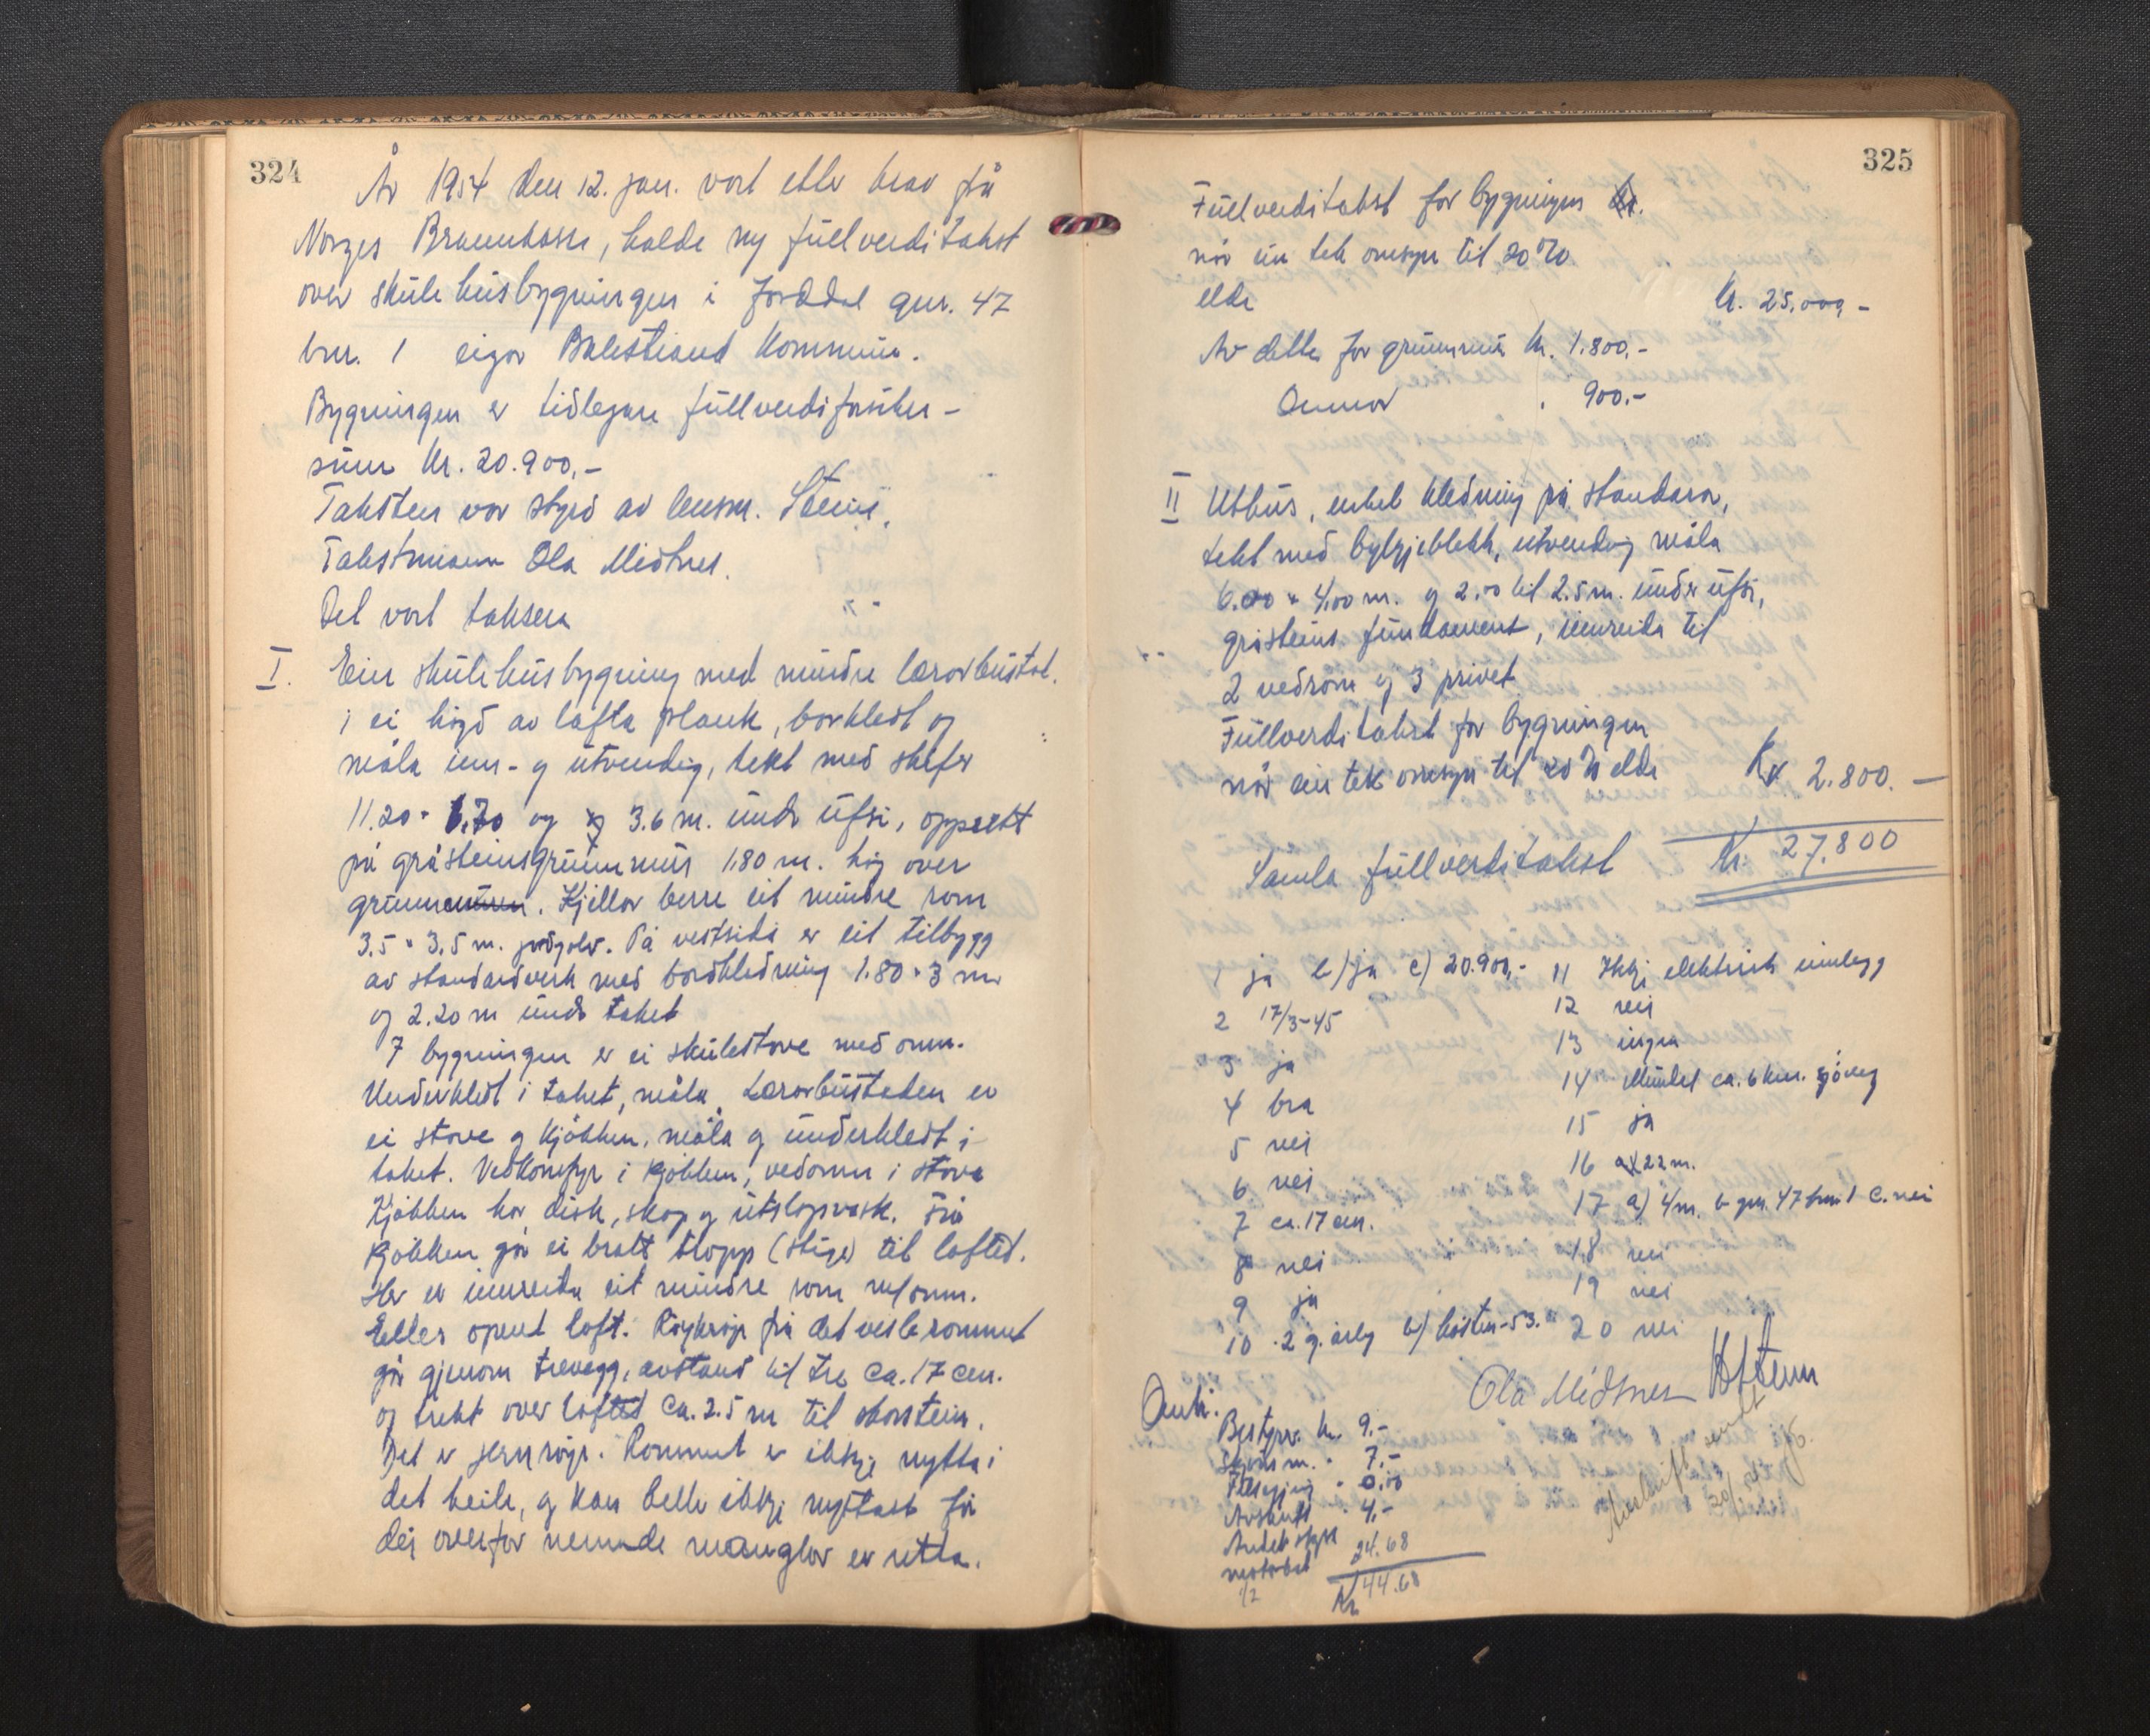 324
År 1954 den 12. jan. vort etter krav frå
Norges Brannkasse, halde ny fullverditakst
over skulehusbygningen i Jorddal gnr. 47
bnr. 1 eigar Balestrand kommune.
Bygningen er tidlegare fullverdiforsikr-
Kr. 20.900,-
Taksten var styrd av lensm. Steine.
Takstmann Ola Midtnes.
Det vart taksera
I. Ein skulehusbygning med mindre lærarbustad.
i ei høgd av lafta plank, bordkledt og
måla inn- og utvendig, tekt med skifer
11.20 × 6.70 og 3.6 m. under ufsi, oppsett
på gråsteinsgrunnmur 1.80 m. høg over
grunnen. Kjellar berre eit mindre rom
3.5 × 3.5 m. jordgolv. På vestsida er eit tilbygg
av standardverk med bordkledning 1.80 × 3 m
og 2.20 m under taket
I bygningen er ei skulestove med omn.
Underkledt i taket, måla. Lærarbustaden er
ei stove og kjøkken, måla og underkledt i
taket. Vedkomfyr i kjøkken, vedomn i stova
Kjøkken har disk, skap og utslagsvask. Frå
kjøkken går ei bratt tropp (stige) til loftet.
Her er innreida eit mindre rom m/omn.
Elles opent loft. Røykrøyr frå det vesle rommet
går gjenom trevegg, avstand til tre ca. 17 cm.
og trekt over loftet ca. 2.5 m til skorstein.
Det er jernrøyr. Rommet er ikkje nytta i
det heile, og kan heller ikkje nyttast før
dei ovenfor nemnde manglar er retta.
325
Fullverditakst for bygningen
når ein tek omsyn til 20%
elde Kr. 25.000,-
Av dette for grunnmur kr. 1.800,-
Omnar " 900.-
II Uthus, enkel kledning på standarar,
tekt med bylgjeblekk, utvendig måla
6.00 × 4.00 m. og 2.00 til 2.5 m. under ufsi,
gråsteins fundament, innreida til
2 vedrom og 3 privet
Fullverditakst for bygningen
når ein tek omsyn til 20% elde Kr. 2.800.-
Samla fullverditakst Kr. 27.800
1 ja b) ja c) 20.900,-
2 17/3-45
3 ja
4 bra
5 nei
6 nei
7 ca. 17 cm.
8 nei
9 ja
10 2 g. årleg b) hausten-53.
11 Ikkje elektrisk innlegg
12 nei
13 ingen
14 ca. 6 km. sjøveg
15 ja
16 a) 22 m.
17 a) 4 m. b gnr. 47 bnr. 1 c. nei
18 nei
19 nei
20 nei
Ola Midtnes HSteine
Bestyrar kr. 9.-
Skjønsm. " 7.-
Avskrift " 4.-
motorbåt 24.68
1/2
Kr 44.68
Avskrift sendt
20/1 54